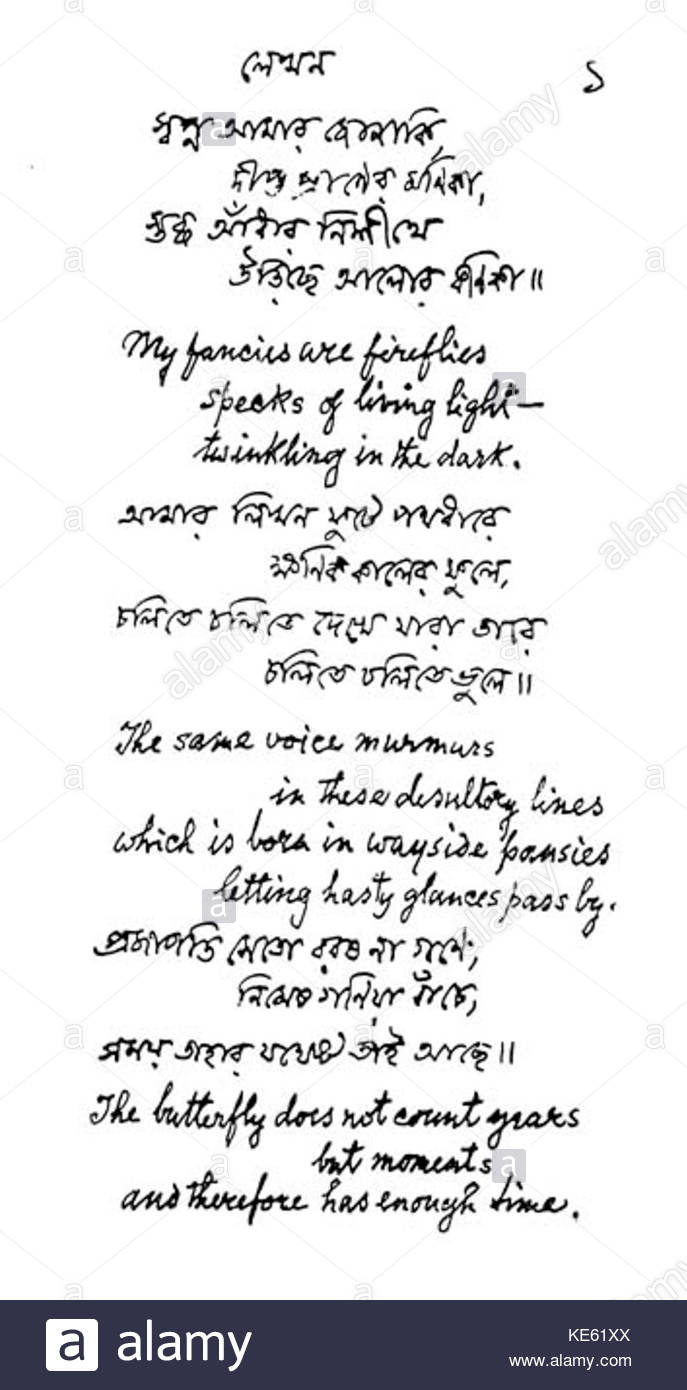 লেখন
১
স্বপ্ন আমার জোনাকি,
দীপ্ত প্রাণের মণিকা,
স্তব্ধ আঁধার নিশীথে
উড়িছে আলোর কণিকা॥
My fancies are fireflies
specks of living light—
twinkling in the dark.
আমার লিখন ফুটে পথধারে
ক্ষণিক কালের ফুলে,
চলিতে চলিতে দেখে যারা তারে
চলিতে চলিতে ভুলে॥
The same voice murmurs
in these desultory lines
which is born in wayside pansies
letting hasty glances pass by.
প্রজাপতি সেতো বরষ না গণে,
নিমেষ গণিয়া বাঁচে,
সময় তাহার যথেষ্ট তাই আছে॥
The butterfly does not count years
but moments
and therefore has enough time.
alamy
KE61XX
www.alamy.com